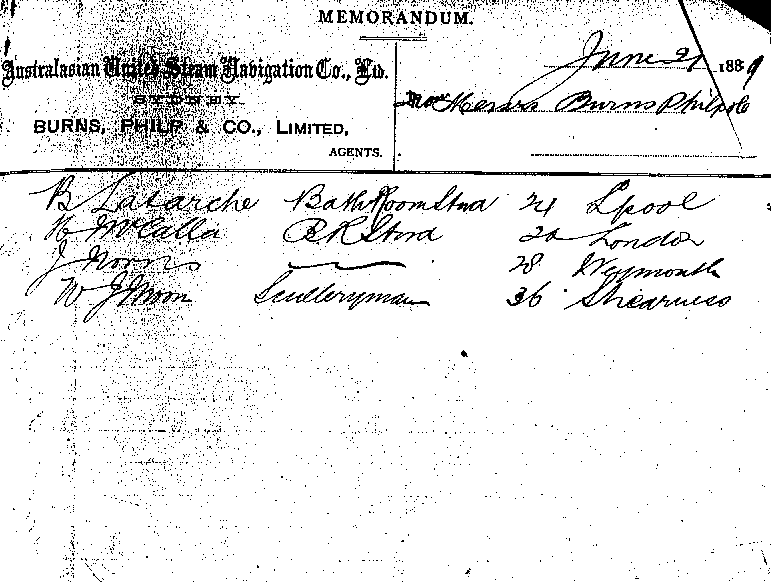 MEMORANDUM.
Australasian United Steam Navigation Co., Ld.
SYDNEY.
BURNS, PHILP & CO., LIMITED,
AGENTS.
June 21 1889
Messrs Burns Philp & Co
B Latarche Bath Room Stwd 21 Lpool
H McCalla B R Stwd 20 London
J Norris 28 Weymouth
W J Moon Sculleryman 36 Shearness